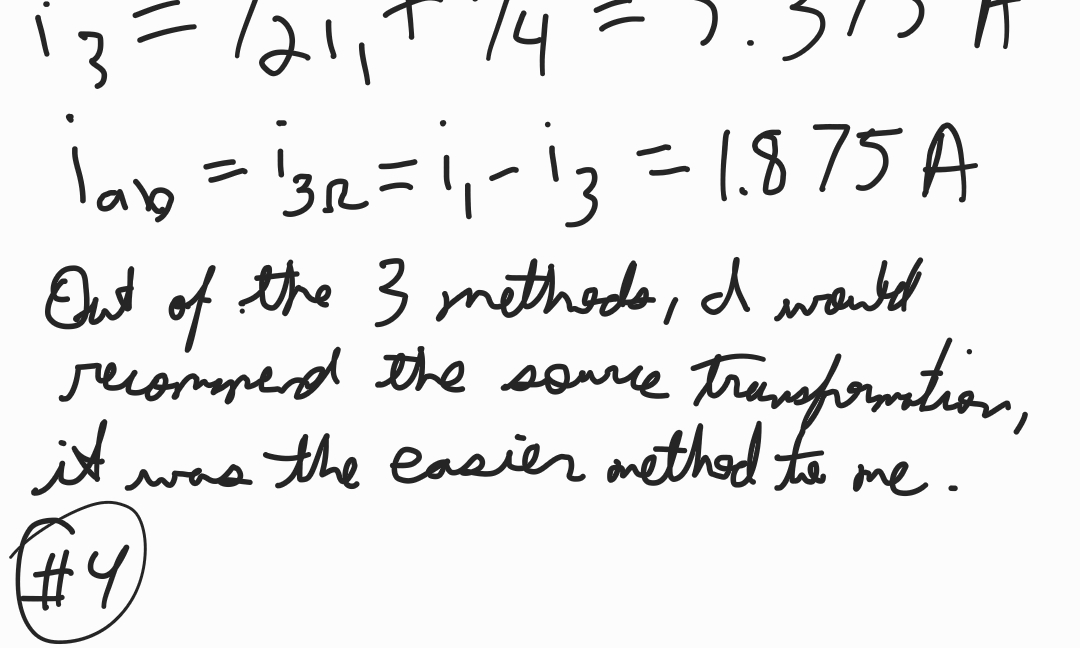 i₃ = 1/2 i₁ + 1/4 = 3.375 A
i_ab = i_3Ω = i₁ - i₃ = 1.875 A
Out of the 3 methods, I would
recommend the source transformation,
it was the easier method to me.
#4